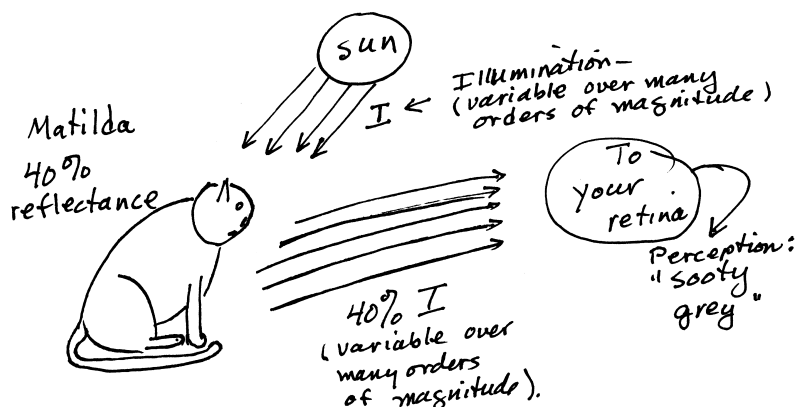 sun
I ← Illumination—
(variable over many
orders of magnitude)
Matilda
40%
reflectance
To
your
retina
Perception:
"sooty
grey"
40% I
(variable over
many orders
of magnitude).